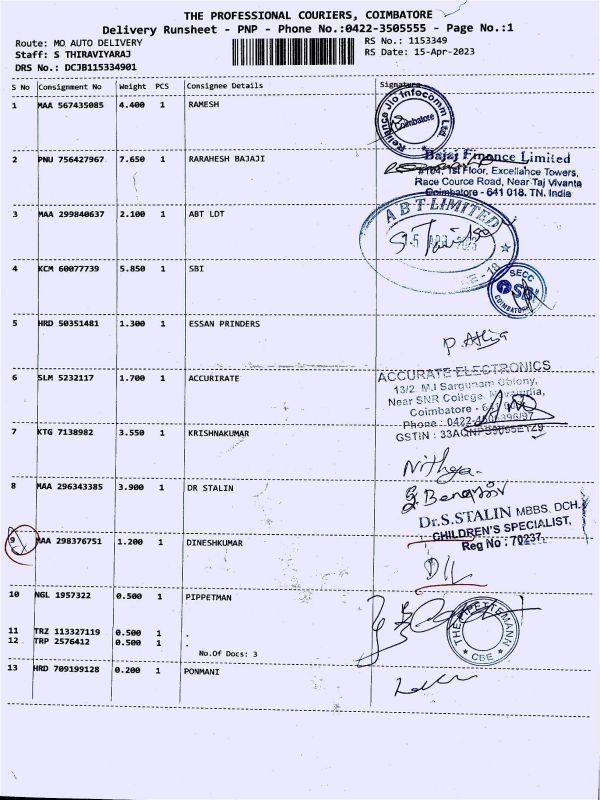 THE PROFESSIONAL COURIERS, COIMBATORE
Delivery Runsheet - PNP - Phone No.:0422-3505555 - Page No.:1
Route: MO AUTO DELIVERY
RS No.: 1153349
Staff: S THIRAVIYARAJ
RS Date: 15-Apr-2023
DRS No.: DCJB115334901
S No Consignment No Weight PCS Consignee Details Signature
1 MAA 567435085 4.400 1 RAMESH
Reliance Jio Infocomm Ltd.
Coimbatore
2 PNU 756427967 7.650 1 RARAHESH BAJAJI
Bajaj Finance Limited
#104, 1st Floor, Excellance Towers,
Race Cource Road, Near Taj Vivanta
Coimbatore - 641 018. TN. India
3 MAA 299840637 2.100 1 ABT LDT
ABT LIMITED
4 KCM 60077739 5.850 1 SBI
SECC
SBI
COIMBATORE
5 HRD 50351481 1.300 1 ESSAN PRINDERS
6 SLM 5232117 1.700 1 ACCURIRATE
ACCURATE ELECTRONICS
13/2, M.J Sargunam Colony,
Near SNR College,
Coimbatore -
Phone : 0422-
GSTIN :
7 KTG 7138982 3.550 1 KRISHNAKUMAR
Nithya.
8 MAA 296343385 3.900 1 DR STALIN
Dr.S.STALIN MBBS, DCH.
CHILDREN'S SPECIALIST,
Reg No : 70237.
9 MAA 298376751 1.200 1 DINESHKUMAR
10 NGL 1957322 0.500 1 PIPPETMAN
11 TRZ 113327119 0.500 1 .
12 TRP 2576412 0.500 1 .
No.Of Docs: 3
CBE
13 HRD 709199128 0.200 1 PONMANI